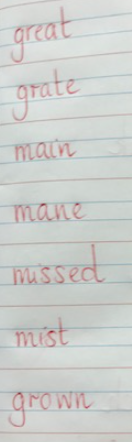 great
grate
main
mane
missed
mist
grown